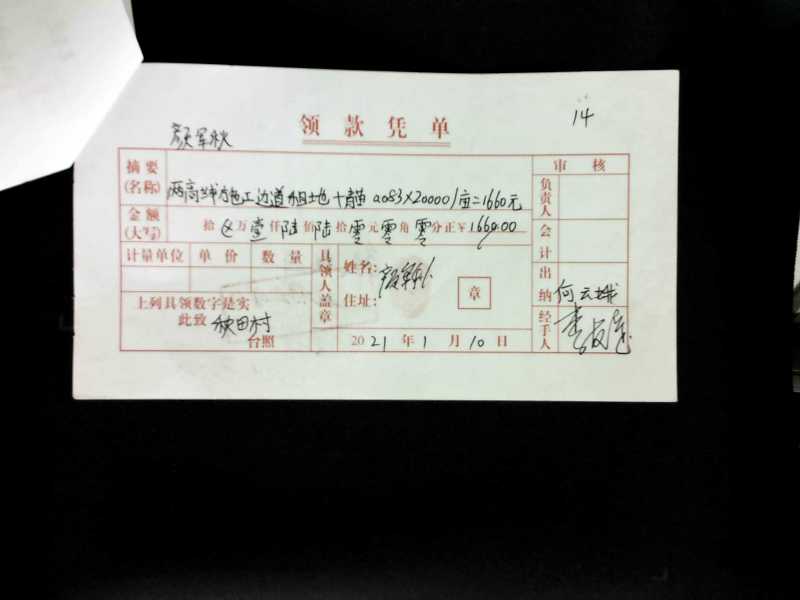 14
颜军秋
领款凭单
摘要(名称) 两高线施工边道租地十苗 0.083×20000/亩=1660元
审核
负责人
会计
出纳 何云娥
经手人
金额(大写) 拾 万壹仟陆佰陆拾零元零角零分正¥1660.00
计量单位 单价 数量
具领人盖章
姓名:颜军秋
住址:
章
上列具领数字是实
此致 秧田村
台照
2021年1月10日